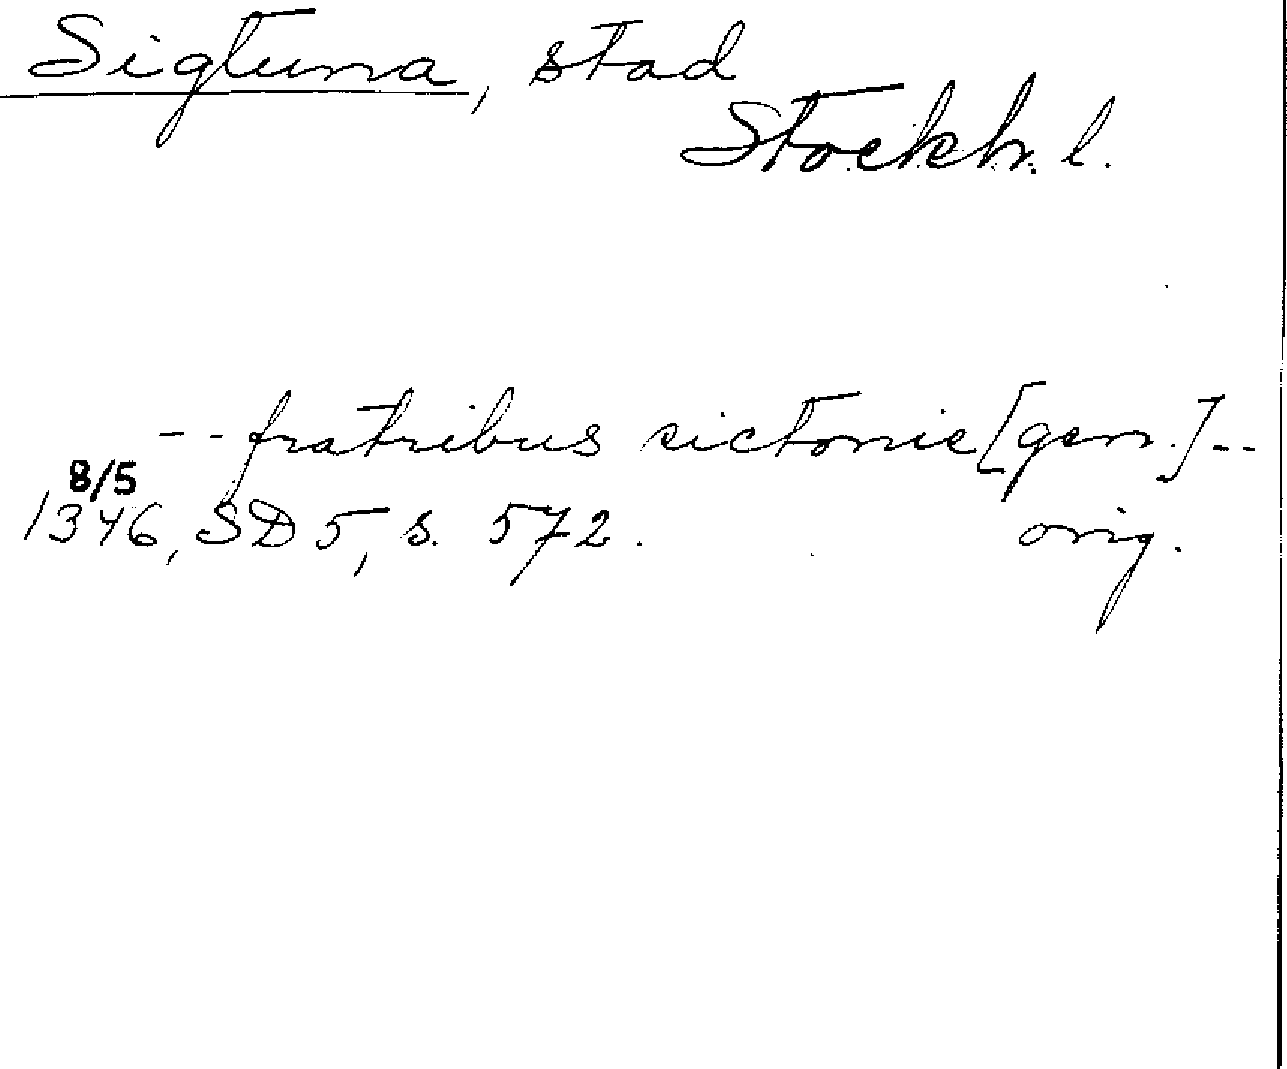 Sigtuna, stad
Stockh. l.
-- fratribus sictonie [gen.] --
8/5
1346, SD 5, s. 572. orig.